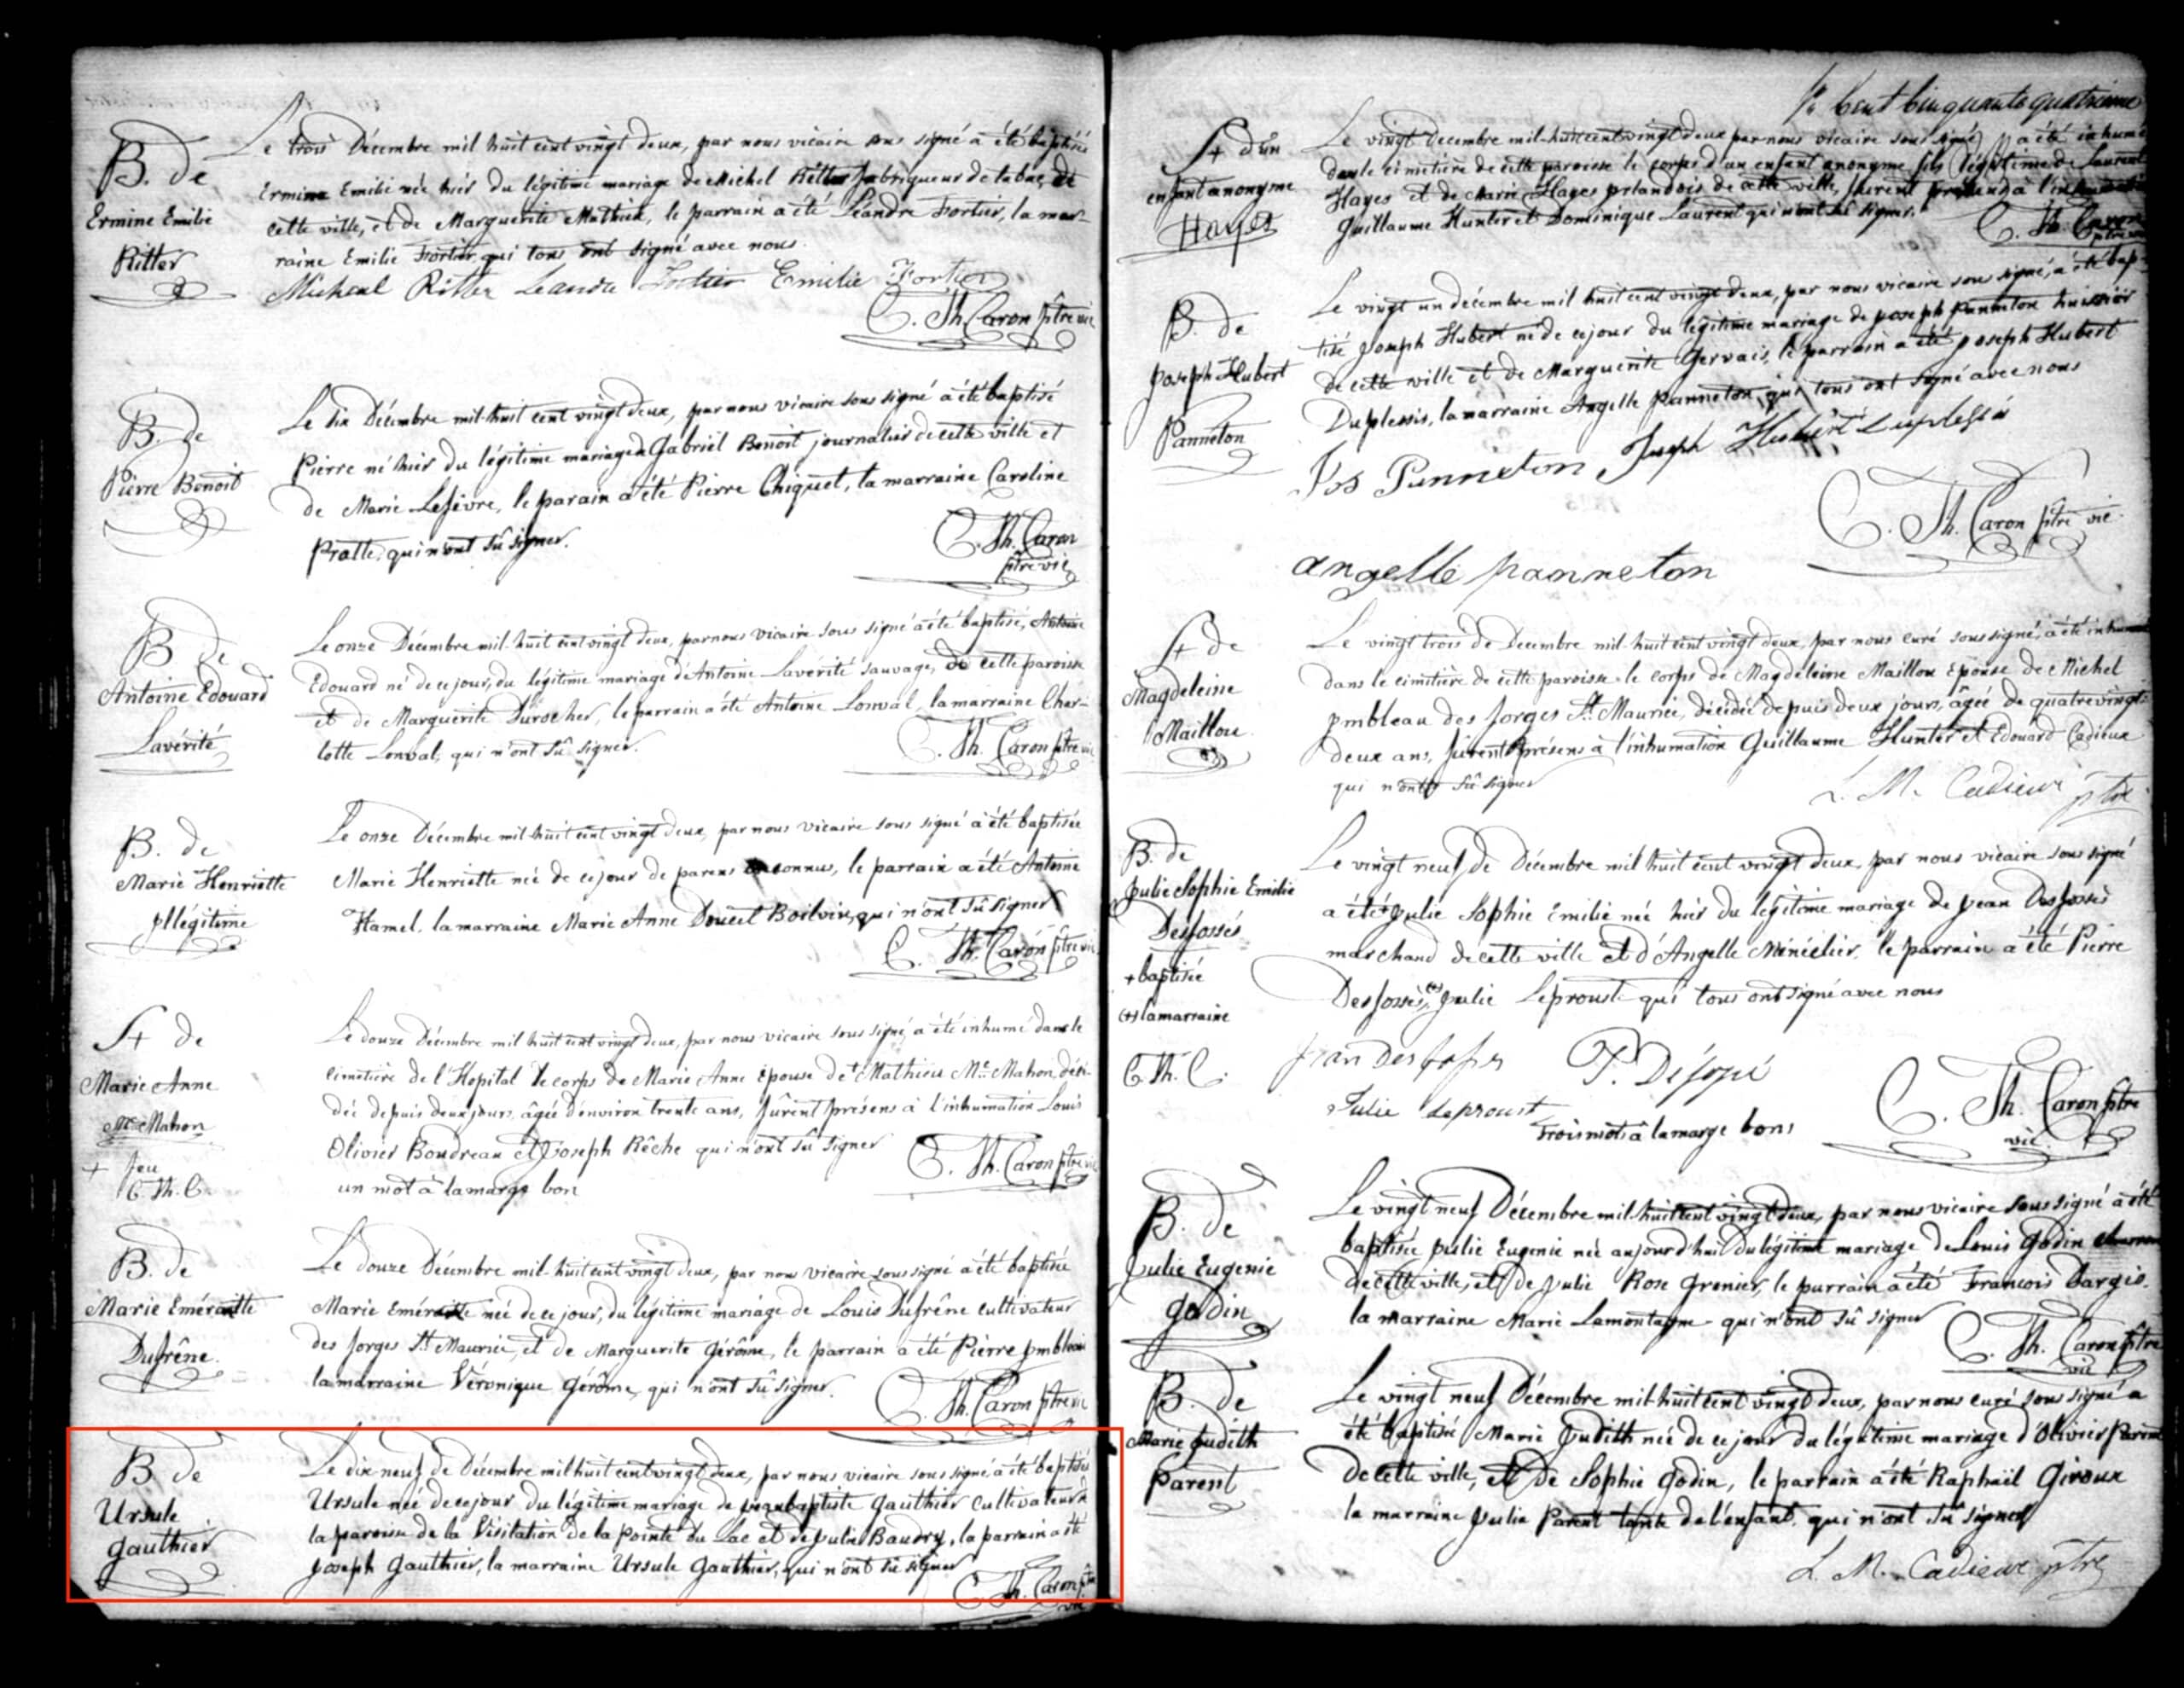 B. de
Ermine Emilie
Ritter
Le trois Décembre mil huit cent vingt deux, par nous vicaire sous signé a été baptisée
Ermine Emilie née hier du légitime mariage de Michel Ritter fabriqueur de tabac de
cette ville, et de Marguerite Mathieu, le parrain a été Léandre Fortier, la mar-
raine Emilie Fortier, qui tous ont signé avec nous.
Micheal Ritter Leandre Fortier Emilie Fortier
C. Th. Caron ptre vic
B. de
Pierre Benoit
Le dix Décembre mil huit cent vingt deux, par nous vicaire sous signé a été baptisé
Pierre né hier du légitime mariage de Gabriel Benoit journalier de cette ville et
de Marie Lefèvre, le parain a été Pierre Chiquet, la marraine Caroline
Pratte, qui n'ont sû signer.
C. Th. Caron
ptre vic
B de
Antoine Edouard
Lavérité
Le onze Décembre mil huit cent vingt deux, par nous vicaire sous signé a été baptisé, Antoine
Edouard né de ce jour, du légitime mariage d'Antoine Lavérité sauvage, de cette paroisse
et de Marguerite Durocher, le parrain a été Antoine Lonval, la marraine Char-
lotte Lonval, qui n'ont sû signer.
C. Th. Caron ptre vic
B. de
Marie Henriette
Illégitime
Le onze Décembre mil huit cent vingt deux, par nous vicaire sous signé a été baptisée
Marie Henriette née de ce jour de parens inconnus, le parrain a été Antoine
Hamel, la marraine Marie Anne Doucet Boilvin, qui n'ont sû signer
C. Th. Caron ptre vic
S+ de
Marie Anne
Mc Mahon
+ feu
C. Th. C.
Le douze Décembre mil huit cent vingt deux, par nous vicaire sous signé, a été inhumé dans le
cimetière de l'Hopital le corps de Marie Anne épouse de + Mathieu Mc Mahon décé-
dée depuis deux jours, âgée d'environ trente ans, fûrent présens à l'inhumation Louis
Olivier Boudreau et Joseph Rêche qui n'ont sû signer
un mot à la marge bon
C. Th. Caron ptre vic
B. de
Marie Emérantte
Dufrêne
Le douze Décembre mil huit cent vingt deux, par nous vicaire sous signé a été baptisée
Marie née de ce jour, du légitime mariage de Louis Dufrêne cultivateur
des forges St Maurice, et de Marguerite Gérôme, le parrain a été Pierre Imbleau
la marraine Véronique Gérôme, qui n'ont sû signer.
C. Th. Caron ptre vic
B. de
Ursule
Gauthier
Le dix neuf de Décembre mil huit cent vingt deux, par nous vicaire sous signé, a été baptisée
Ursule née de ce jour du légitime mariage de Jean baptiste Gauthier cultivateur de
la paroisse de la Visitation de la pointe du Lac et de Julie Baudry, la parrain a été
Joseph Gauthier, la marraine Ursule Gauthier, qui n'ont sû signer
C. Th. Caron ptre
vic
fo Cent Cinquante quatrieme
S+ d'un
enfant anonyme
Hayes
Le vingt Décembre mil huit cent vingt deux par nous vicaire sous signé a été inhumé
dans le cimetière de cette paroisse le corps d'un enfant anonyme fils légitime de Laurent
Hayes et de Marie Hayes Irlandois de cette ville, furent présens à l'inhumation
Guillaume Hunter et Dominique Laurent qui n'ont sû signer.
C. Th. Caron
ptre vic
B. de
Joseph Hubert
Panneton
Le vingt un décembre mil huit cent vingt deux, par nous vicaire sous signé, a été bap-
tisé Joseph Hubert né de ce jour du légitime mariage de Joseph Panneton huissier
de cette ville et de Marguerite Gervais, le parrain a été Joseph Hubert
Duplessis, la marraine Angelle Panneton, qui tous ont signé avec nous
Jos Panneton Joseph Hubért Duplessis
C. Th. Caron ptre vic
angelle panneton
S+ de
Magdeleine
Maillou
Le vingt trois de Décembre mil huit cent vingt deux, par nous curé sous signé, a été inhumé
dans le cimitière de cette paroisse le corps de Magdeleine Maillou Epouse de Michel
Imbleau des forges St. Maurice, décédée depuis deux jours, âgée de quatre vingt
deux ans, furent présens à l'inhumation Guillaume Hunter et Edouard Cadieux
qui n'ont sû signer
L. M. Cadieux ptre
B. de
Julie Sophie Emilie
Desfossés
+ baptisée
(+) la marraine
C. Th. C.
Le vingt neuf de Décembre mil huit cent vingt deux, par nous vicaire sous signé
a été + Julie Sophie Emilie née hier du légitime mariage de Jean Desfossés
marchand de cette ville et d'Angelle Ménéclier, le parrain a été Pierre
Desfossés, (+) Julie Leproust qui tous ont signé avec nous
Jean Desfossés P. Défossé
Julie Leproust
Trois mots à la marge bons
C. Th. Caron ptre
vic
B. de
Julie Eugenie
Godin
Le vingt neuf Décembre mil huit cent vingt deux, par nous vicaire sous signé a été
baptisée Julie Eugenie née aujourd'hui du légitime mariage de Louis Godin
de cette ville, et de Julie Rose Grenier, le parrain a été Francois Dargis.
la marraine Marie Lamontagne qui n'ont sû signer
C. Th. Caron ptre
vic
B. de
Marie Judith
Parent
Le vingt neuf Décembre mil huit cent vingt deux, par nous curé sous signé a
été baptisée Marie Judith née de ce jour du légitime mariage d'Olivier Parent
de cette ville, et de Sophie Godin, le parrain a été Raphaël Giroux
la marraine Julie Parent tante de l'enfant, qui n'ont sû signer
L. M. Cadieux ptre